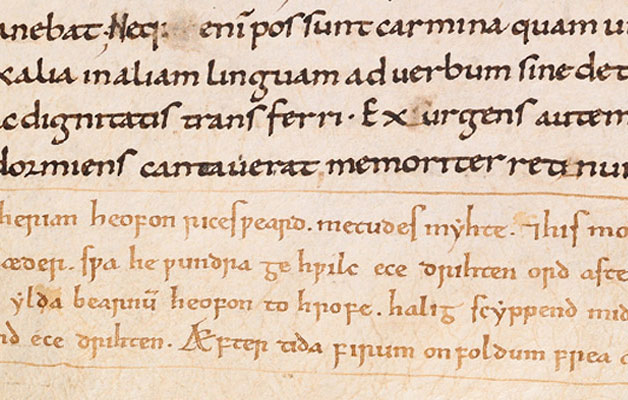 anebat. Neq; enī possunt carmina quam u
xalia in aliam linguam ad uerbum sine det
c dignitatis transferri. Ex urgens autem
dormiens cantauerat memoriter retinu
herian heofon ricesƿeard. metudes myhte. ⁊his mo
æder. sƿa he ƿundra ge hƿilc ece drihten ord aste
ylda bearnū heofon to hrofe. halig scyppend mid
rd ece drihten. Æfter tida firum on foldum frea a